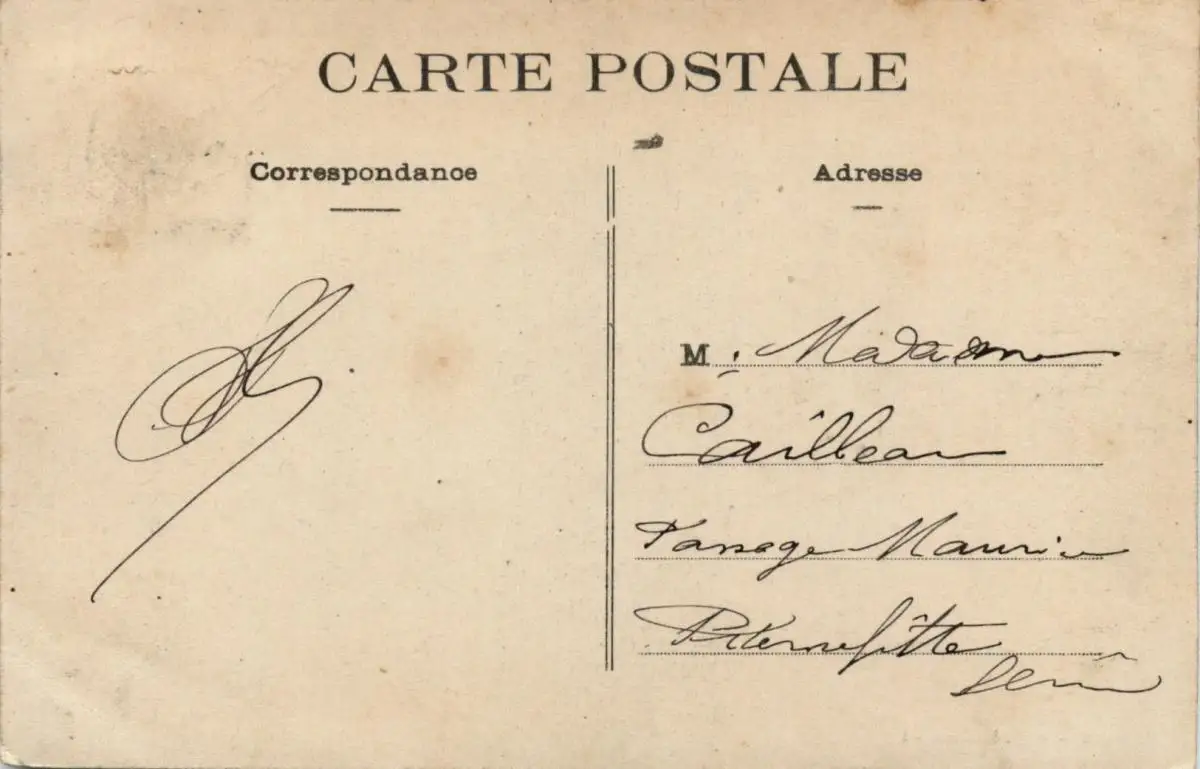 CARTE POSTALE
Correspondance
Adresse
M. Madame
Cailleau
Passage Maurice
Pierrefitte
Seine